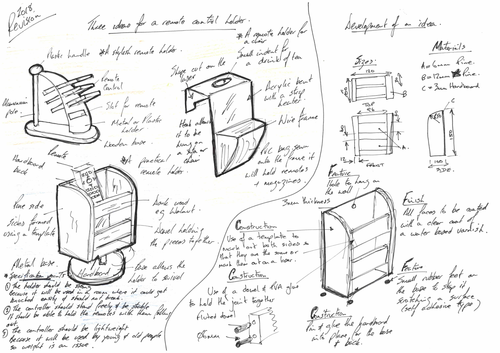 2018
Revision
Three ideas for a remote control holder.
Plastic handle
A stylish remote holder.
Remote
Control
Aluminium
pole
Slot for remote
Metal or Plastic
holder
Wooden base.
Slope cut on the
A remote holder for
a chair
Small indent for
a drink of tea
Acrylic bent
with a strip
heater.
Hook allows
it to be
hung on
a sofa or
chair
Wire frame
PVC bag sewn
onto the frame it
will hold remotes
+ magazines.
Remote
Hardboard
back
A practical
remote holder.
Pine side
Sides formed
using a template
Dark wood
eg Walnut.
Dowel holding
the pieces together
Metal base
Hardboard
Base allows the
holder to swivel
Specification
The holder should be strong
Because it will be used in a room where it could get
knocked easily & should not break.
The controller should stand freely & be stable
It should be able to hold the remotes with them falling
out.
The controller should be lightweight
Because it will be used by young & old people
so weight is an issue.
Construction
Use of a template to
mark out both sides so
that they are the same or
mark them out on a laser.
Construction
Use of a dowel & PVA glue
to hold the joint together
Fluted dowel
Development of an idea.
Sizes:
120
TOP
FRONT
SIDE.
Materials
A = 6mm Pine.
B = 12mm Pine.
C = 3mm Hardboard
Function
Hole to hang on
the wall
3mm thickness
Finish
All faces to be coated
with a clear coat of
a water based varnish.
Function
Small rubber feet on
the base to stop it
scratching a surface
(self adhesive type)
Construction
Pin & glue the hardboard
into place for the base
& back.